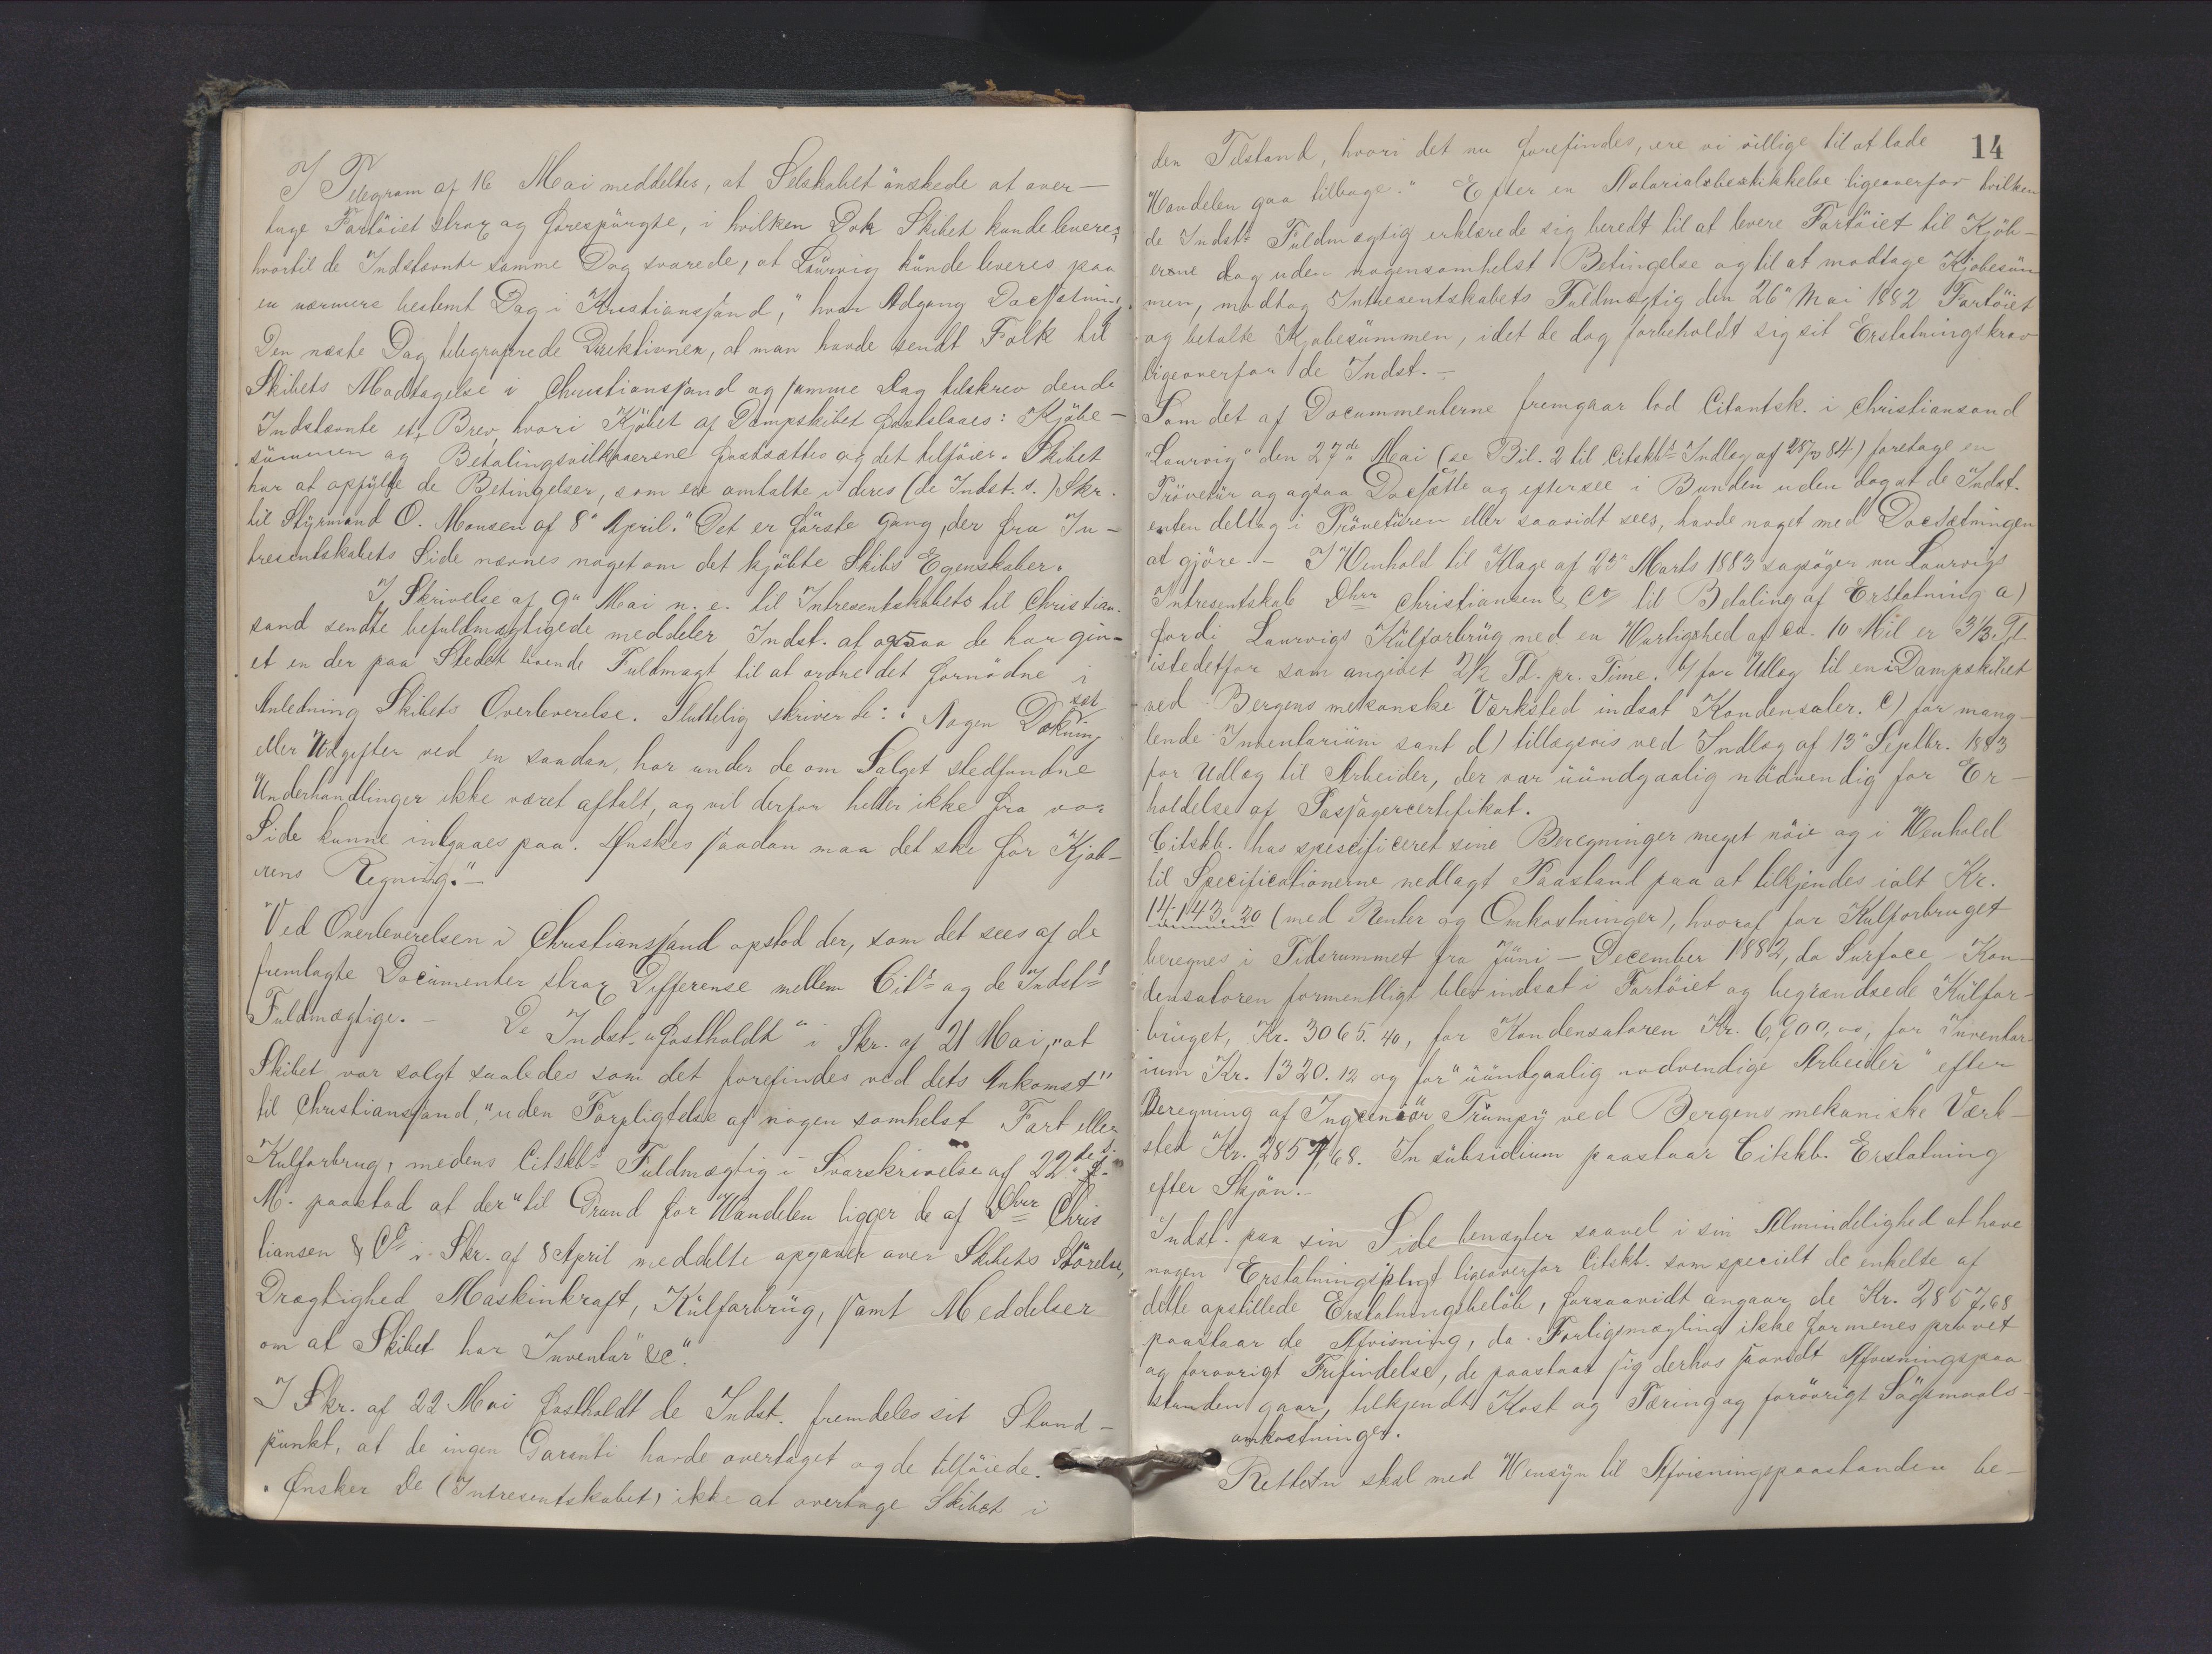 I Telegram af 16 Mai meddeltes, at Selskabet önskede at over-
tage Fartöiet strax og forespürgte, i hvilken Dok Skibet kunde leveres,
hvortil de Indstævnte samme Dag svarede, at Laürvig künde leveres paa
en nærmere bestemt Dag i Kristianssand," hvor Adgang Docsætning.
Den næste Dag telegraferede Direktionen, at man havde sendt Folk til
Skibets Modtagelse i Christianssand og samme Dag tilskrev de nde
Indstævnte et Brev, hvori Kjöbet af Dampskibet fastslaaes: Kjöbe-
sümmen og Betalingsvilkaarene fastsættes og det tilföier. Skibet
har at opfylde de Betingelser, som ere omtalte i deres (de Indst. s.) Skr.
til Styrmand O. Monsen af 8" April." Det er förste Gang, der fra In-
tresentskabets Side nævnes noget om det kjöbte Skibs Egenskaber.
I Skrivelse af 9" Mai n. e. til Intresentskabets til Christian-
sand sendte befuldmægtigede meddeler Indst. at ogsaa de har giv-
et en der paa Stedet boende Fuldmagt til at ordne det fornödne i
Anledning Skibets Overleverelse. Sluttelig skriver de: "Nogen Doksætning
eller Udgifter ved en saadan, har under de om Salget stedfundne
Underhandlinger ikke været aftalt, og vil derfor heller ikke fra vor
Side kunne indgaaes paa. Ønskes saadan maa det ske for Kjöb-
erens Regning."-
Ved Overleverelsen i Christianssand opstod der, som det sees af de
fremlagte Documenter strax Differense mellem Cits og de Indsts
Fuldmægtige. - De Indst. "fastholdt" i Skr. af 21 Mai, "at
Skibet var solgt saaledes som det forefindes ved dets Ankomst"
til Christianssand, "uden Forpligtelse af nogen somhelst Fart eller
Kulforbrug, medens Citskbs Fuldmægtig i Svarskrivelse af 22
M. paastod at der "til Grund for Handelen ligger de af Dhrr Chris
tiansen & Co i Skr. af 8 April meddelte opgaver over Skibets Störelse,
Drægtighed Maskinkraft, Külforbrüg, samt Meddelser
om at Skibet har Inventar" &c".
I Skr. af 22 Mai fastholdt de Indst. fremdeles sit Stand-
punkt, at de ingen Garanti havde overtaget og de tilföiede.
"Ønsker De (Intresentskabet) ikke at overtage Skibet i
14
den Tilstand, hvori det nu forefindes, ere vi villige til at lade
Handelen gaa tilbage." Efter en Notarialsbeskikkelse ligeoverfor hvilken
de Indsts Fuldmægtig erklærede sig beredt til at levere Fartöiet til Kjöb-
erne dog uden nogensomhelst Betingelse og til at modtage Kjöbesüm
men, modtog Intresentskabets Fuldmægtig den 26" Mai 1882 Fartöiet
og betalte Kjøbesümmen, idet de dog forbeholdt sig sit Erstatningskrav
ligeoverfor de Indst. -
Som det af Docummenterne fremgaar lod Citantsk. i Christiansand
"Laurvig" den 27de Mai (se Bil. 2 til Citskbs Indlæg af 84) foretage en
Prövetür og ogsaa Docsætte og eftersee i Bunden uden dog at de Indst.
enten deltog i Prövetüren eller saavidt sees, havde noget med Docsætningen
at gjöre. - I Henhold til Klage af Marts 1883 sagsöger nu Laurvigs
Intresentskab Dhrr Christiansen & Co til Betaling af Erstatning a)
fordi Laurvigs Külforbrüg med en Hurtighed af ca. 10 Mil er 3⅓ Td.
istedetfor som angivet 2½ Td. pr. Time. b) for Udlæg til en i Dampskibet
ved Bergens mekanske Værksted indsat Kondensater. c) for mang-
lende Inventarium samt d) tillægsvis ved Indlæg af 13" Septbr. 1883
for Udlæg til Arbeider, der var üündgaalig nödvendig for Er-
holdelse af Passagercertifikat.
Citskb. has spescificeret sine Beregninger meget nöie og i Henhold
til Specificationerne nedlagt Paastand paa at tilkjendes ialt Kr.
14.143.20 (med Renter og Omkostninger), hvoraf for Kulforbruget
beregnes i Tidsrummet fra Jüni - December 1882, da Surface - Kon-
densatoren formentligt blev indsat i Fartöiet og begrændsede Külfor-
brüget, Kr. 3065.40, for Kondensatoren Kr. 6,900,00, for Inventar-
ium Kr. 1320.12 og for "üündgaalig nødvendige Arbeider" efter
Beregning af Ingeniör Trümpy ved Bergens mekaniske Værk-
sted Kr. 2857,68. In sübsidium paastaar Citskb. Erstatning
efter Skjön.-
Indst. paa sin Side benægter saavel i sin Almindelighed at have
nogen Erstatningspligt ligeoverfor Citskb. som specielt de enkelte af
dette opstillede Erstatningsbelöb, forsaavidt angaar de Kr. 2857,68
paastaar de Afvisning, da Forligsmægling ikke formenes prövet
og forøvrigt Frifindelse, de paastaar sig derhos saavidt Afvisningspaa
standen gaar, tilkjendt Kost og Tæring og forövrigt Sögsmaals-
omkostninger.
Retten skal med Hensyn til Afvisningspaastanden be-